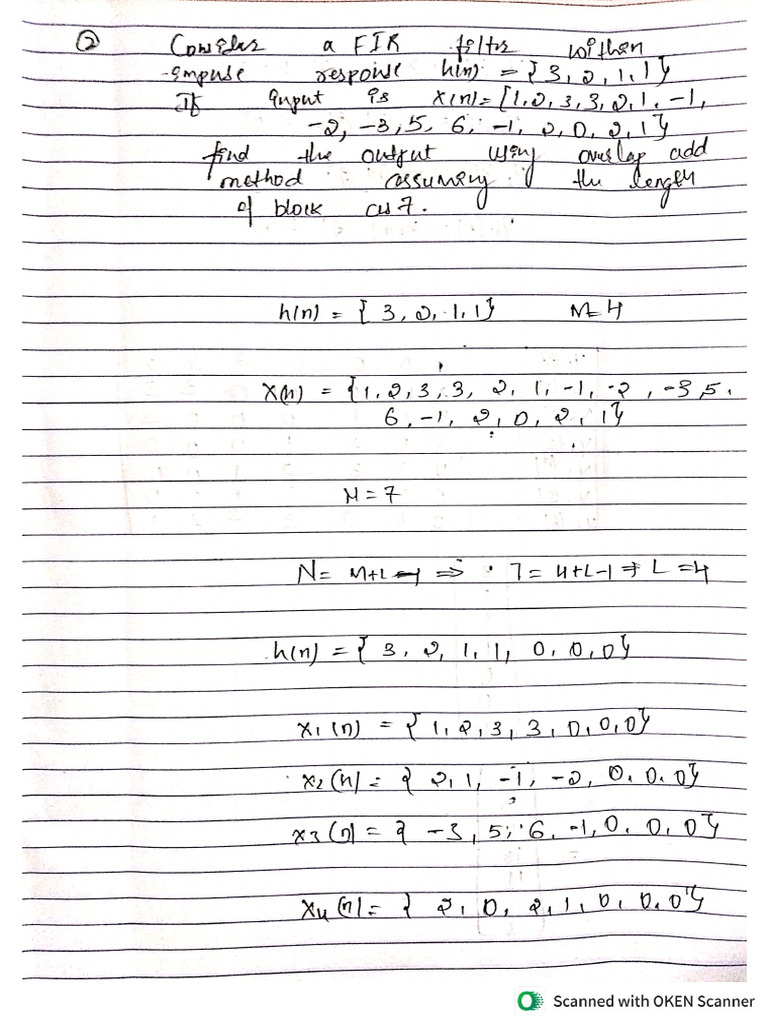 ② Consider a FIR filter with an
impulse response h(n) = {3, 2, 1, 1}
If input is x(n) = [1, 2, 3, 3, 2, 1, -1,
-2, -3, 5, 6, -1, 2, 0, 2, 1}
find the output using overlap add
method assuming the length
of block as 7.
h(n) = { 3, 2, 1, 1} M=4
x(n) = {1, 2, 3, 3, 2, 1, -1, -2, -3, 5,
6, -1, 2, 0, 2, 1}
N = 7
N = M+L-1 => 7 = 4+L-1 => L = 4
h(n) = { 3, 2, 1, 1, 0, 0, 0}
x1(n) = { 1, 2, 3, 3, 0, 0, 0}
x2(n) = { 2, 1, -1, -2, 0, 0, 0}
x3(n) = { -3, 5, 6, -1, 0, 0, 0}
x4(n) = { 2, 0, 2, 1, 0, 0, 0}
Scanned with OKEN Scanner